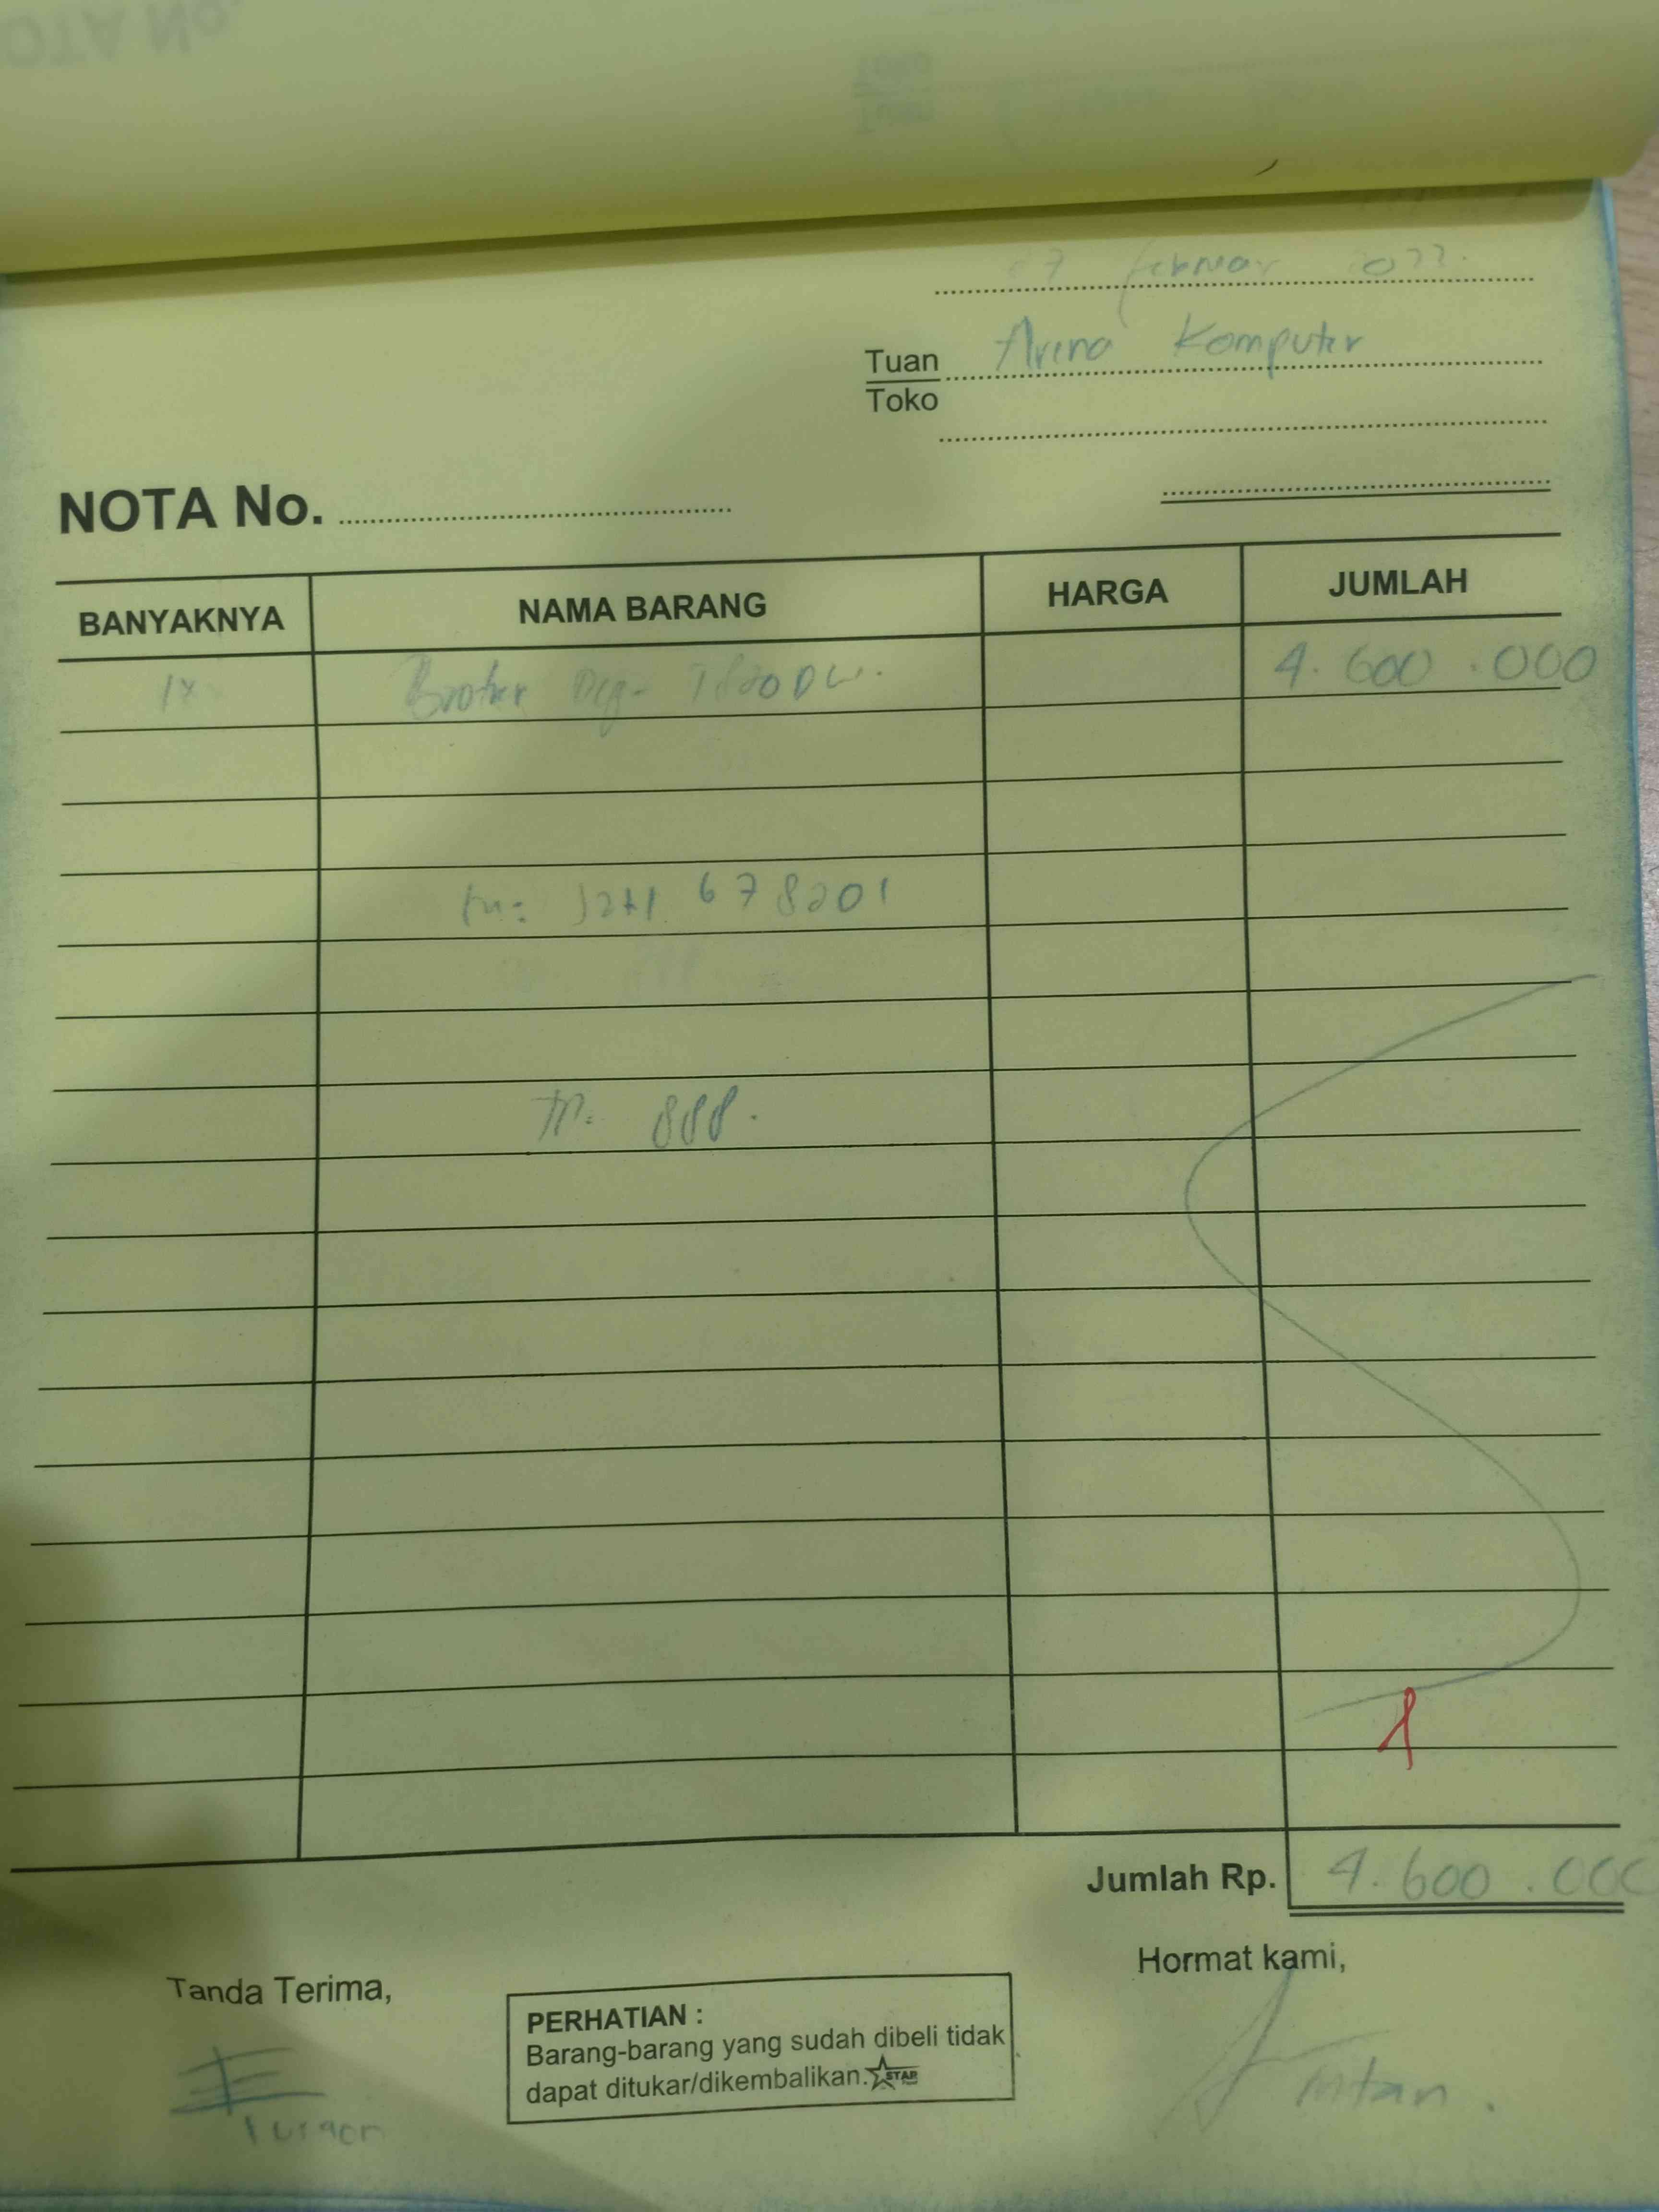 7 februar 2022.
Tuan Arena Komputer
Toko
NOTA No.
BANYAKNYA NAMA BARANG HARGA JUMLAH
1x Brother 4.600.000
678201
888.
Jumlah Rp. 4.600.000
Tanda Terima, Hormat kami,
PERHATIAN :
Barang-barang yang sudah dibeli tidak
dapat ditukar/dikembalikan. STAR
Intan.